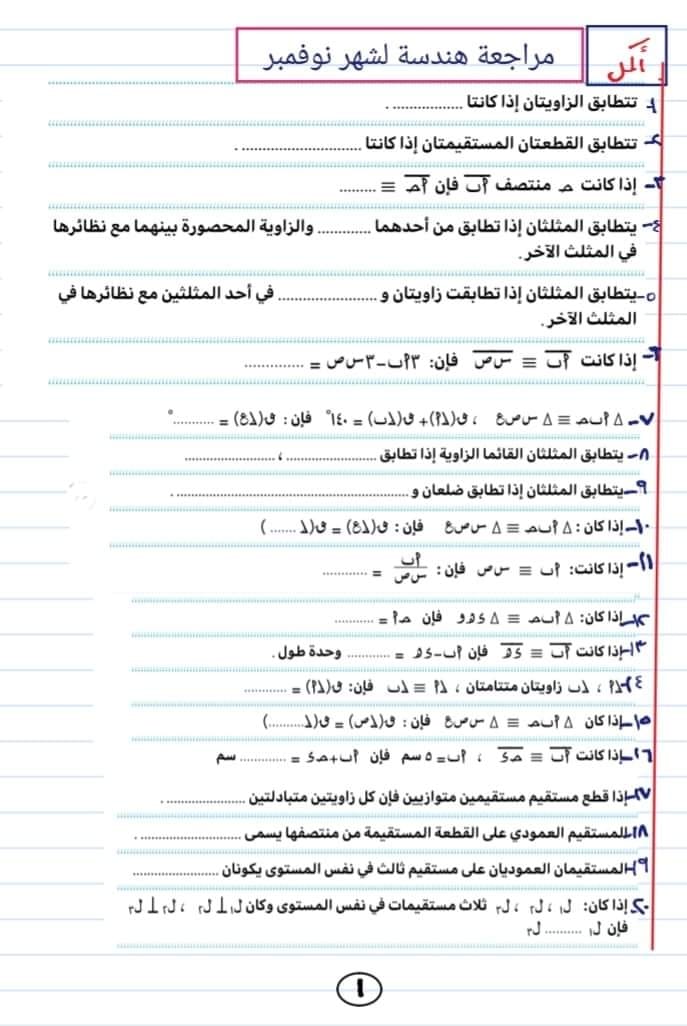 أكمل
مراجعة هندسة لشهر نوفمبر
١- تتطابق الزاويتان إذا كانتا ................. .
٢- تتطابق القطعتان المستقيمتان إذا كانتا ............................. .
٣- إذا كانت م منتصف أب فإن أم ≡ .........
٤- يتطابق المثلثان إذا تطابق من أحدهما ............. والزاوية المحصورة بينهما مع نظائرها
في المثلث الآخر .
٥- يتطابق المثلثان إذا تطابقت زاويتان و ........................ في أحد المثلثين مع نظائرها في
المثلث الآخر .
٦- إذا كانت أب ≡ س ص فإن: ٣أب - ٣س ص = ..............
٧- Δ أ ب جـ ≡ Δ س ص ع ، ق(∠أ) + ق(∠ب) = ١٤٠° فإن : ق(∠ع) = ..........°
٨- يتطابق المثلثان القائما الزاوية إذا تطابق ...................... ، ......................
٩- يتطابق المثلثان إذا تطابق ضلعان و ........................................................ .
١٠- إذا كان : Δ أ ب جـ ≡ Δ س ص ع فإن : ق(∠ع) = ق(∠ ....... )
١١- إذا كانت: أب ≡ س ص فإن : أب / س ص = ...........
١٢- إذا كان: Δ أ ب جـ ≡ Δ د هـ و فإن جـ أ = ..........
١٣- إذا كانت أب ≡ د هـ فإن أب - د هـ = ........... وحدة طول .
١٤- ∠أ ، ∠ب زاويتان متتامتان ، ∠أ ≡ ∠ب فإن: ق(∠أ) = ...........
١٥- إذا كان Δ أ ب جـ ≡ Δ س ص ع فإن : ق(∠ص) = ق(∠.........)
١٦- إذا كانت أب ≡ جـ د ، أب = ٥ سم فإن أب + جـ د = ............ سم
١٧- إذا قطع مستقيم مستقيمين متوازيين فإن كل زاويتين متبادلتين ................... .
١٨- المستقيم العمودي على القطعة المستقيمة من منتصفها يسمى ......................... .
١٩- المستقيمان العموديان على مستقيم ثالث في نفس المستوى يكونان .....................
٢٠- إذا كان: ل١ ، ل٢ ، ل٣ ثلاث مستقيمات في نفس المستوى وكان ل١ ⊥ ل٢ ، ل٢ ⊥ ل٣
فإن ل١ .......... ل٣
١